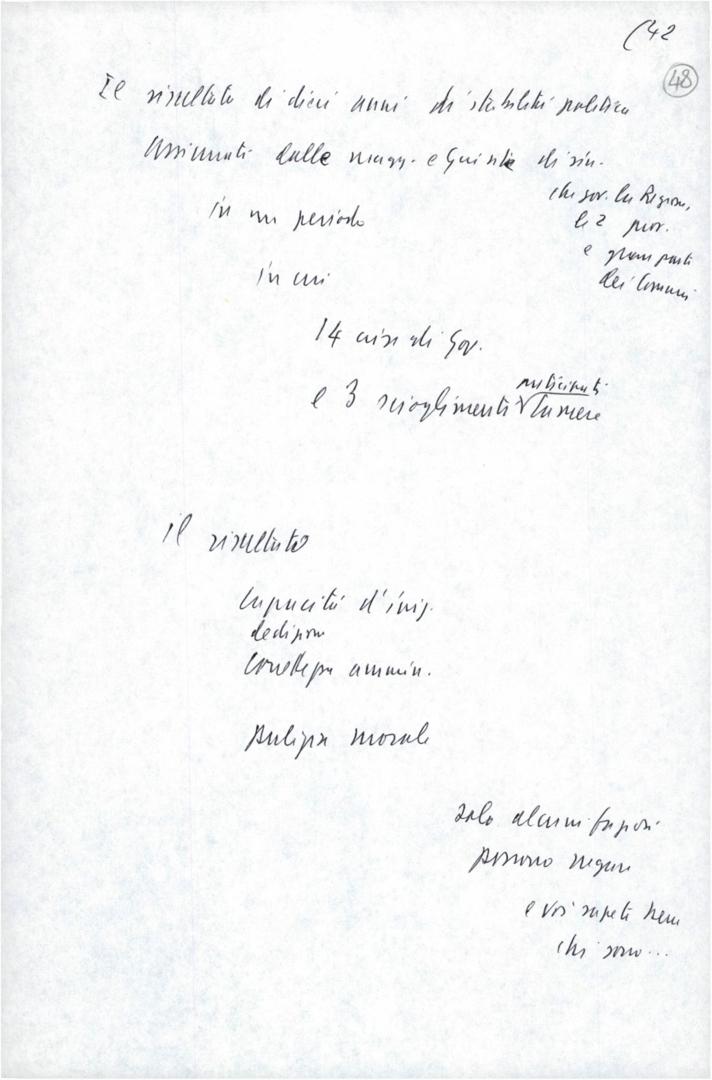 (42
48
Il risultato di dieci anni di stabilità politica
assicurati dalle magg. e Giunte di sin.
che gov. la Regione,
le 2 prov.
e gran parte
dei Comuni
in un periodo
in cui
14 crisi di Gov.
e 3 scioglimenti anticipati Camere
il risultato
capacità d'iniz.
decisione
correttezza ammin.
pulizia morale
solo alcuni faziosi
possono negare
e voi sapete bene
chi sono...